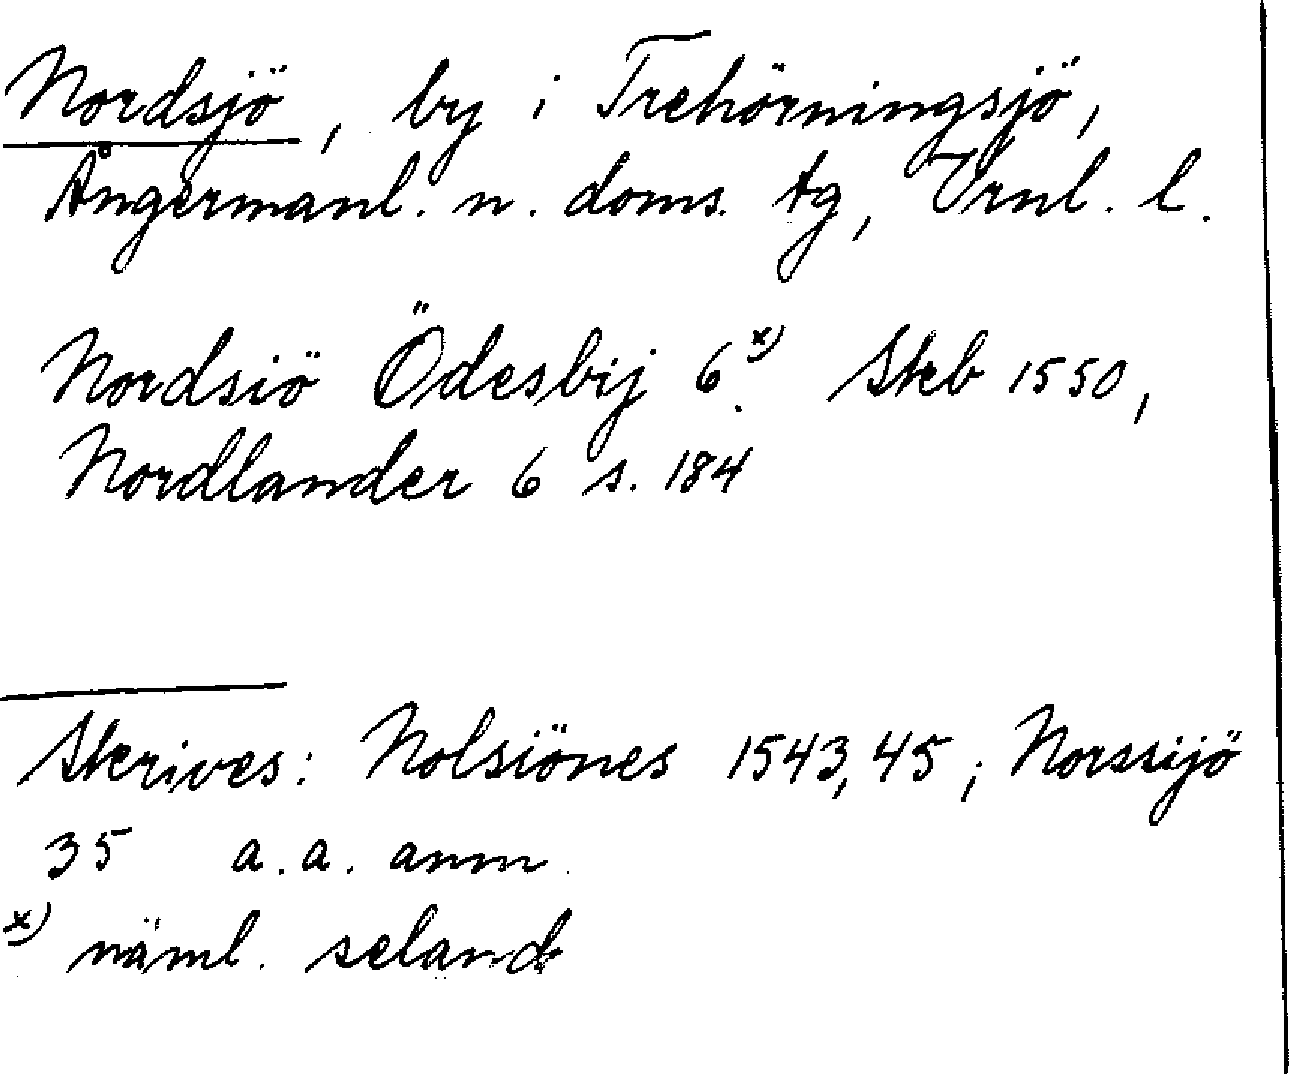 Nordsjö, by i Trehörningsjö,
Ångermanl. n. doms. tg, Vrnl. l.
Nordsiö Ödesbij 6.x) Skb 1550,
Nordlander 6 s. 184
Skrives: Nolsiönes 1543, 45; Norssijö
35 a.a. anm.
x) näml. seland